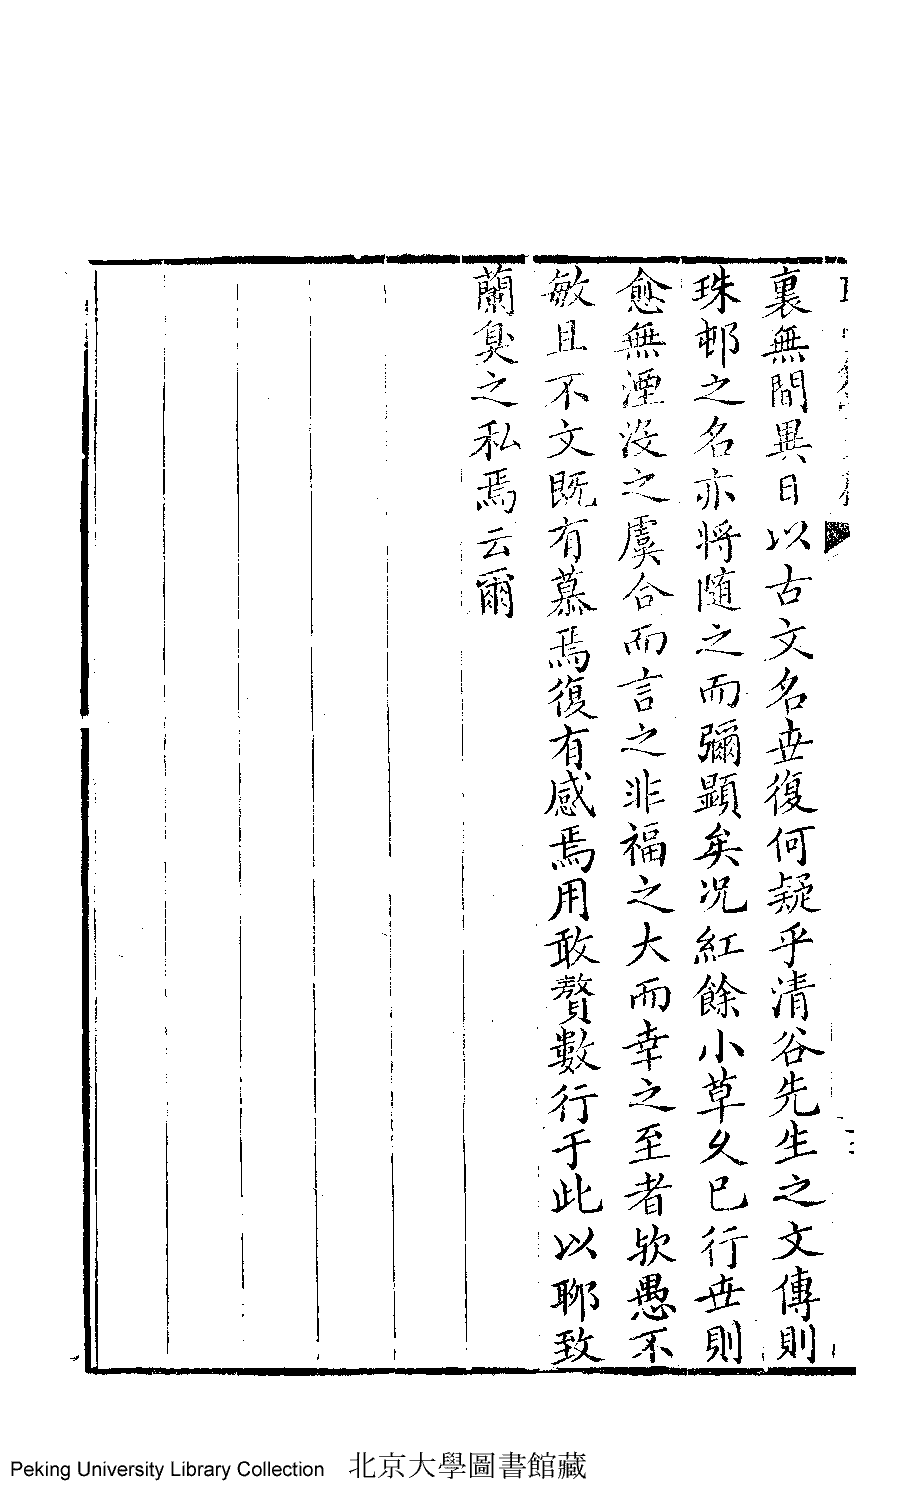 裏無間異日以古文名世復何疑乎清谷先生之文傳則
珠邨之名亦將随之而彌顯矣况紅餘小草久已行世則
愈無湮没之虞合而言之非福之大而幸之至者欤愚不
敏且不文既有慕焉復有感焉用敢贅數行于此以聊致
蘭臭之私焉云爾
Peking University Library Collection 北京大學圖書館藏